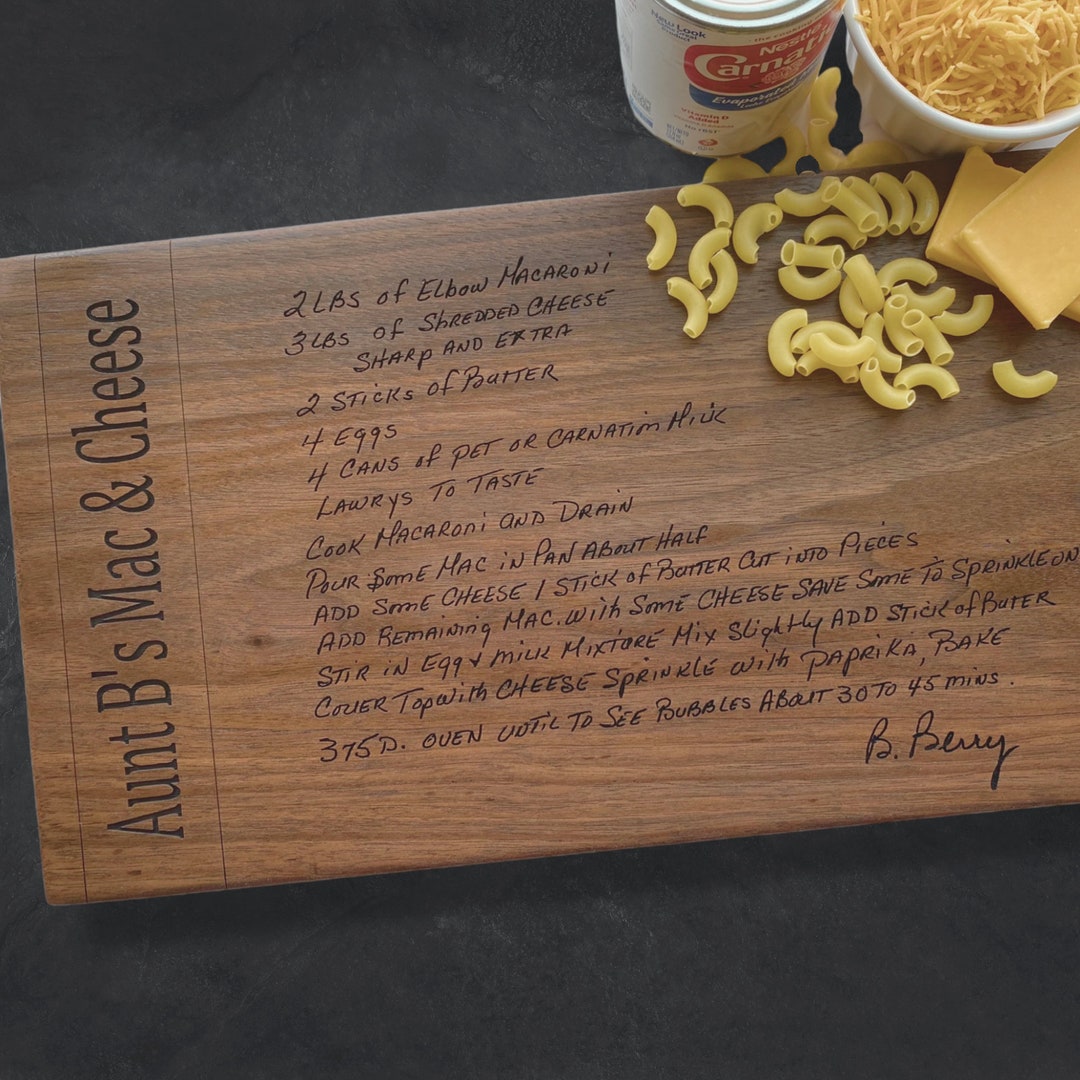 New Look
Nestle
Carnation
Evaporated
Vitamin D
Added
Aunt B's Mac & Cheese
2 LBS of Elbow MACARONi
3 LBS of SHREDDED CHEESE
SHARP AND EXTRA
2 STICKS of BUTTER
4 EGGS
4 CANS of PET OR CARNATION MILK
LAWRYS TO TASTE
COOK MACARONi AND DRAIN
POUR SOME MAC iN PAN ABOUT HALF
ADD SOME CHEESE 1 STICK of BUTTER CUT iNTO PIECES
ADD REMAiNiNg MAC. With SOME CHEESE SAVE SOME TO SPRINKLE ON
STIR iN EGG & MILK MIXTURE MIX SlightLy ADD STICK of BUTER
COVER TOP With CHEESE SPRINKLE With PAPRIKA, BAKE
375 D. OVEN UNTIL TO SEE BUBBLES ABOUT 30 TO 45 mins.
B. Berry